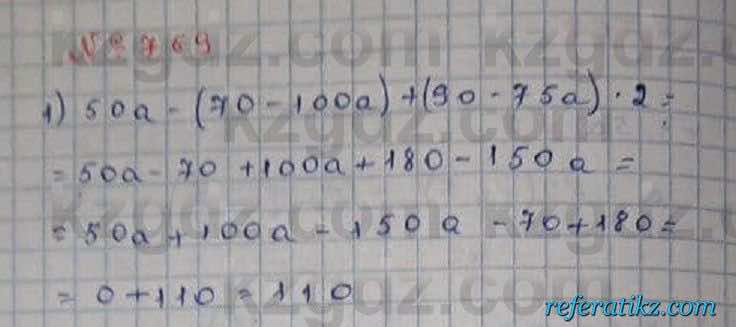 № 769
1) 50a - (70 - 100a) + (90 - 75a) · 2 =
= 50a - 70 + 100a + 180 - 150a =
= 50a + 100a - 150a - 70 + 180 =
= 0 + 110 = 110
referatikz.com